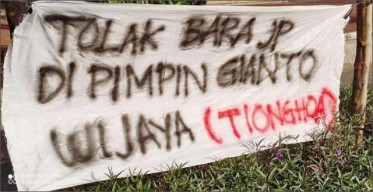 TOLAK BARA JP
DI PIMPIN GIANTO
WIJAYA (TIONGHOA)